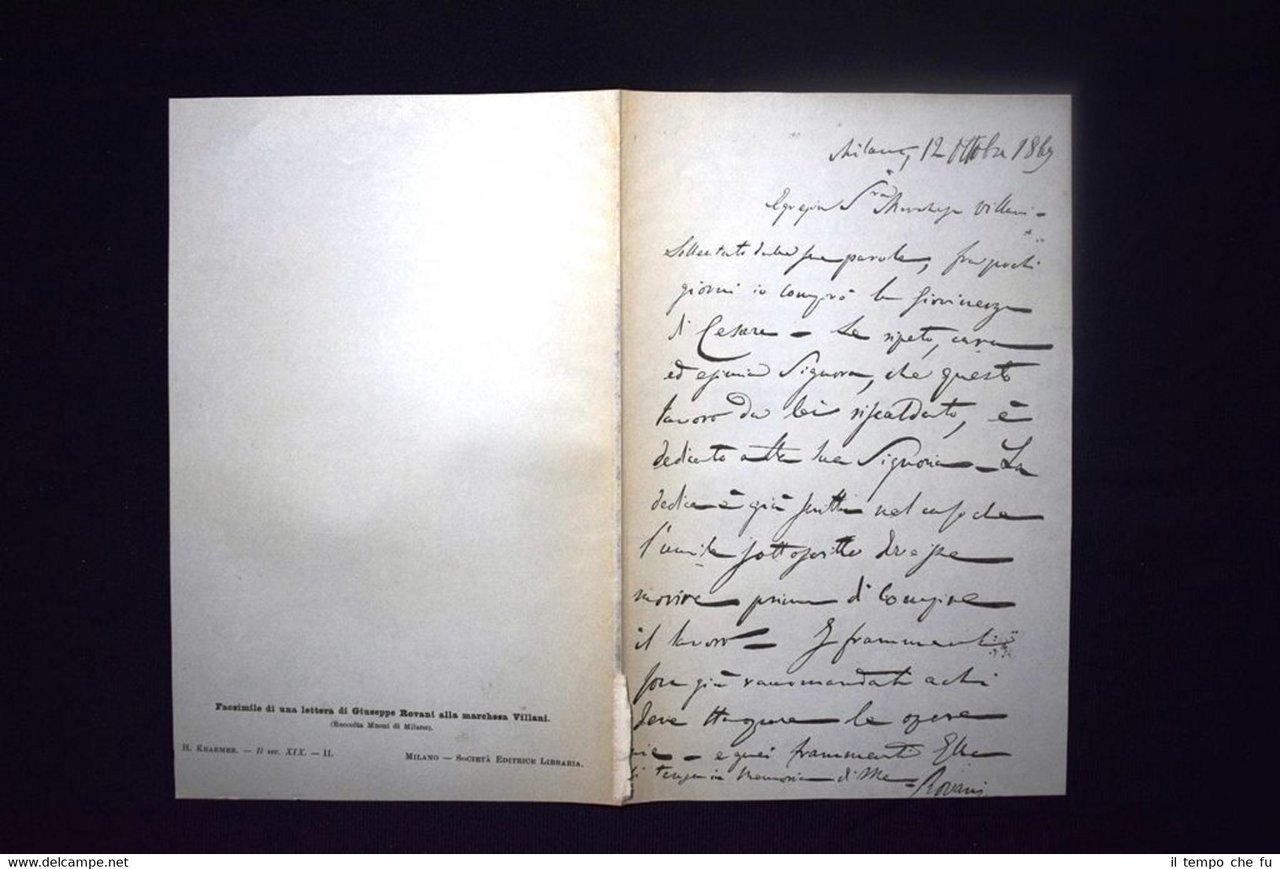 Facsimile di una lettera di Giuseppe Rovani alla marchesa Villani.
(Raccolta Muoni di Milano).
H. KRAEMER. — Il sec. XIX. — II.
MILANO — SOCIETÀ EDITRICE LIBRARIA.
Milano, 12 Ottobre 1869
Egregia Sra Marchesa Villani -
Sollecitato dalle sue parole, fra pochi
giorni io compirò la Giovinezza
di Cesare - Le ripeto, cara
ed esimia Signora, che questo
lavoro da lei riscaldato, è
dedicato alla sua Signoria - La
dedica è già scritta nel caso che
l'umile sottoscritto dovesse
morire prima di compire
il lavoro - I frammenti
son già raccomandati a chi
deve stampare le opere
mie - e quei frammenti Ella
li tenga in memoria di Me -
Rovani
www.delcampe.net
il tempo che fu